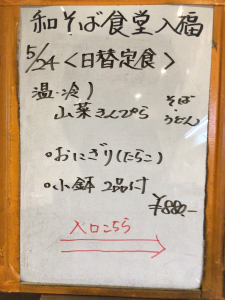 和そば食堂入福
5/24<日替定食>
温・冷)
山菜きんぴら そば・うどん
○おにぎり(たらこ)
○小鉢 2品付
¥880-
入口こちら